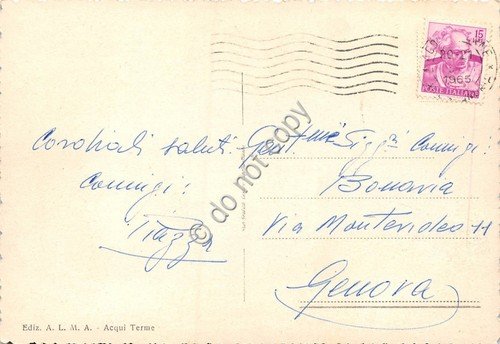 15
1965
POSTE ITALIANE
Cordiali saluti
Coniugi:
Piazza
Gent.mi Sigg.ri Coniugi:
Bonavia
Via Montevideo 11
Genova
© do not copy
Ediz. A. L. M. A. - Acqui Terme